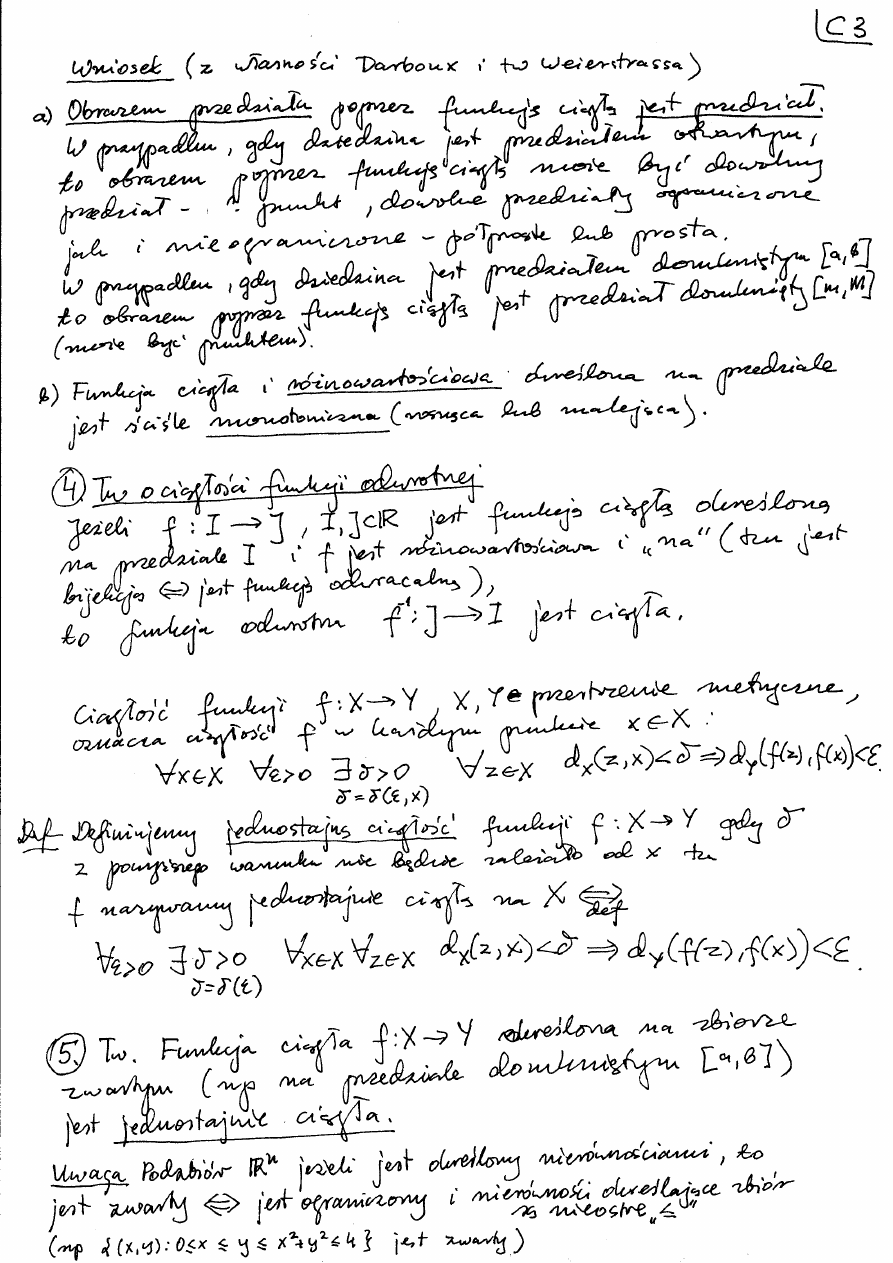 C3
Wniosek (z własności Darboux i tw Weierstrassa)
a) Obrazem przedziału poprzez funkcję ciągłą jest przedział.
W przypadku, gdy dziedzina jest przedziałem otwartym,
to obrazem poprzez funkcję ciągłą może być dowolny
przedział - punkt, dowolne przedziały ograniczone
jak i nieograniczone - półproste lub prosta.
W przypadku, gdy dziedzina jest przedziałem domkniętym [a,b]
to obrazem poprzez funkcję ciągłą jest przedział domknięty [m,M]
(może być punktem).
b) Funkcja ciągła i różnowartościowa określona na przedziale
jest ściśle monotoniczna (rosnąca lub malejąca).
④ Tw o ciągłości funkcji odwrotnej
Jeżeli f : I → J , I, J⊂ℝ jest funkcją ciągłą określoną
na przedziale I i f jest różnowartościowa i „na" (tzn jest
bijekcją ⇔ jest funkcją odwracalną),
to funkcja odwrotna f⁻¹: J → I jest ciągła.
Ciągłość funkcji f: X → Y , X, Y przestrzenie metryczne,
oznacza ciągłość f w każdym punkcie x ∈ X :
∀x∈X ∀ε>0 ∃δ>0 ∀z∈X d_X(z,x)<δ ⇒ d_Y(f(z),f(x))<ε.
δ=δ(ε,x)
Def Definiujemy jednostajną ciągłość funkcji f : X → Y gdy δ
z powyższego warunku nie będzie zależało od x tzn
f nazywamy jednostajnie ciągłą na X ⇔
def
∀ε>0 ∃δ>0 ∀x∈X ∀z∈X d_X(z,x)<δ ⇒ d_Y(f(z),f(x))<ε.
δ=δ(ε)
⑤ Tw. Funkcja ciągła f: X → Y określona na zbiorze
zwartym (np na przedziale domkniętym [a,b])
jest jednostajnie ciągła.
Uwaga Podzbiór ℝⁿ jeżeli jest określony nierównościami, to
jest zwarty ⇔ jest ograniczony i nierówności określające zbiór
są nieostre „≤"
(np {(x,y): 0≤x ≤ y ≤ x²+y² ≤ 4} jest zwarty)